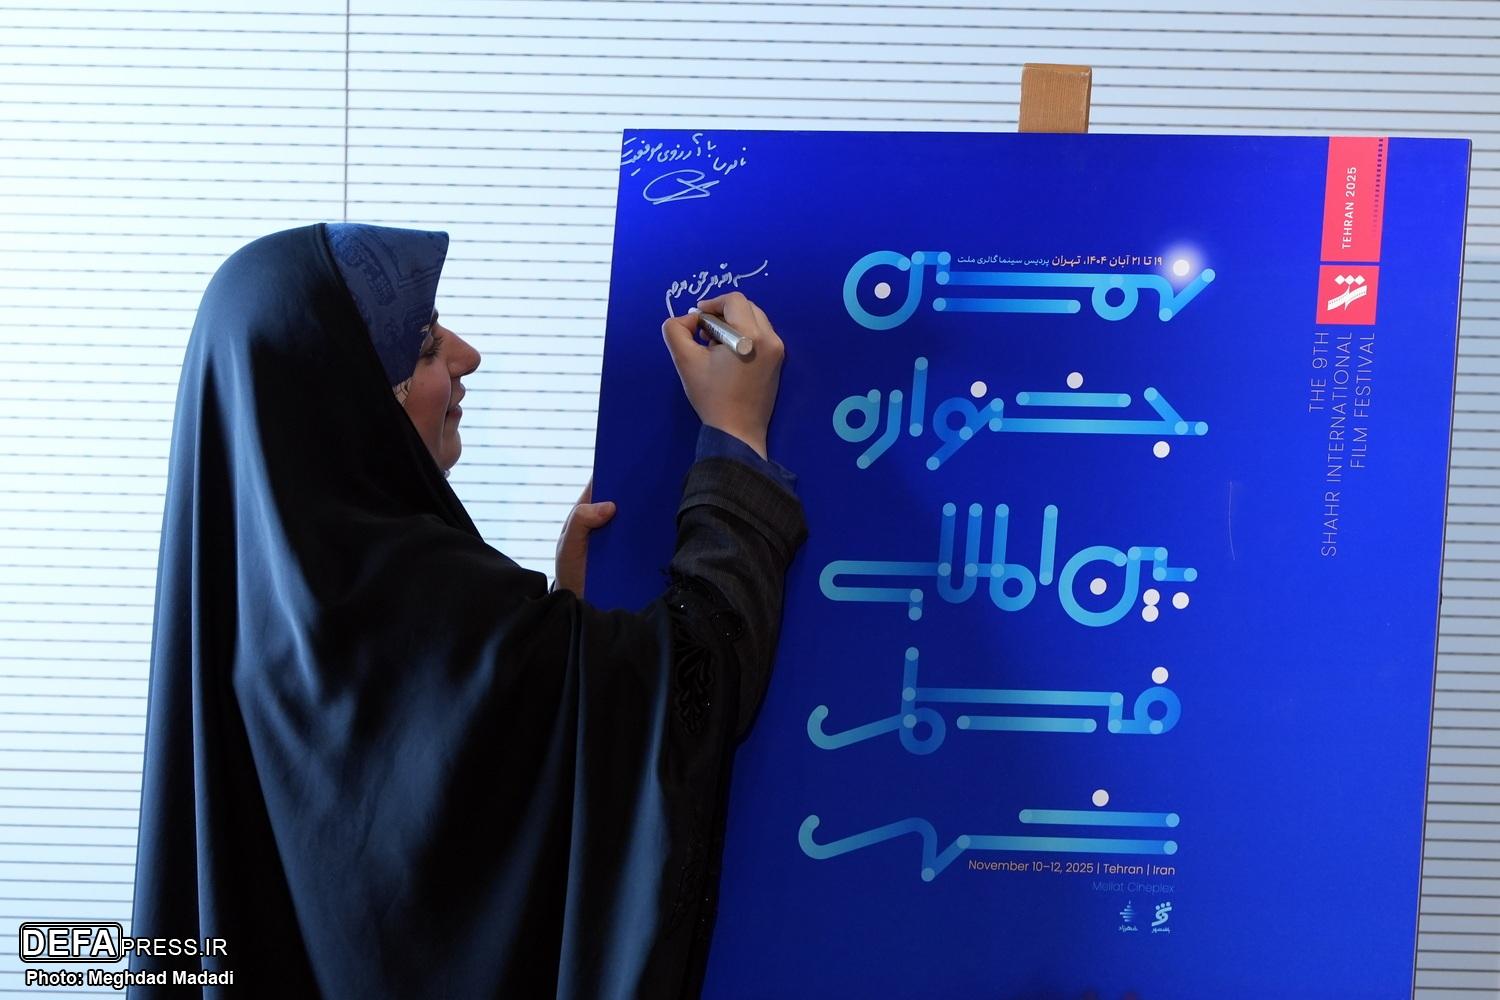 با آرزوی موفقیت
بسم الله الرحمن الرحیم
۱۹ تا ۲۱ آبان ۱۴۰۴، تهران پردیس سینما گالری ملت
نهمین
جشنواره
بین‌المللی
فیلم
شهر
November 10–12, 2025 | Tehran | Iran
Mellat Cineplex
شهرزاد
TEHRAN 2025
THE 9TH
SHAHR INTERNATIONAL
FILM FESTIVAL
DEFAPRESS.IR
Photo: Meghdad Madadi